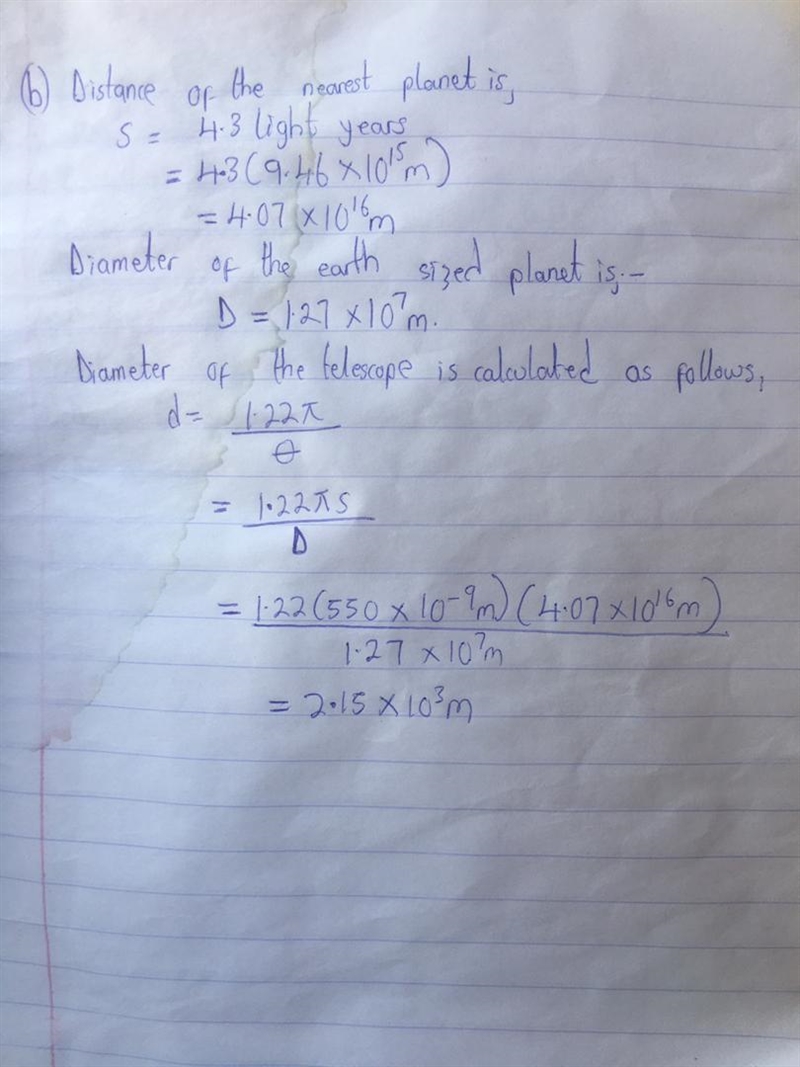 (b) Distance of the nearest planet is,
S = 4.3 light years
= 4.3(9.46 × 10¹⁵m)
= 4.07 × 10¹⁶m
Diameter of the earth sized planet is;-
D = 1.27 × 10⁷m.
Diameter of the telescope is calculated as follows,
d = 1.22π
θ
= 1.22πs
D
= 1.22(550 × 10⁻⁹m)(4.07 × 10¹⁶m)
1.27 × 10⁷m
= 2.15 × 10³m